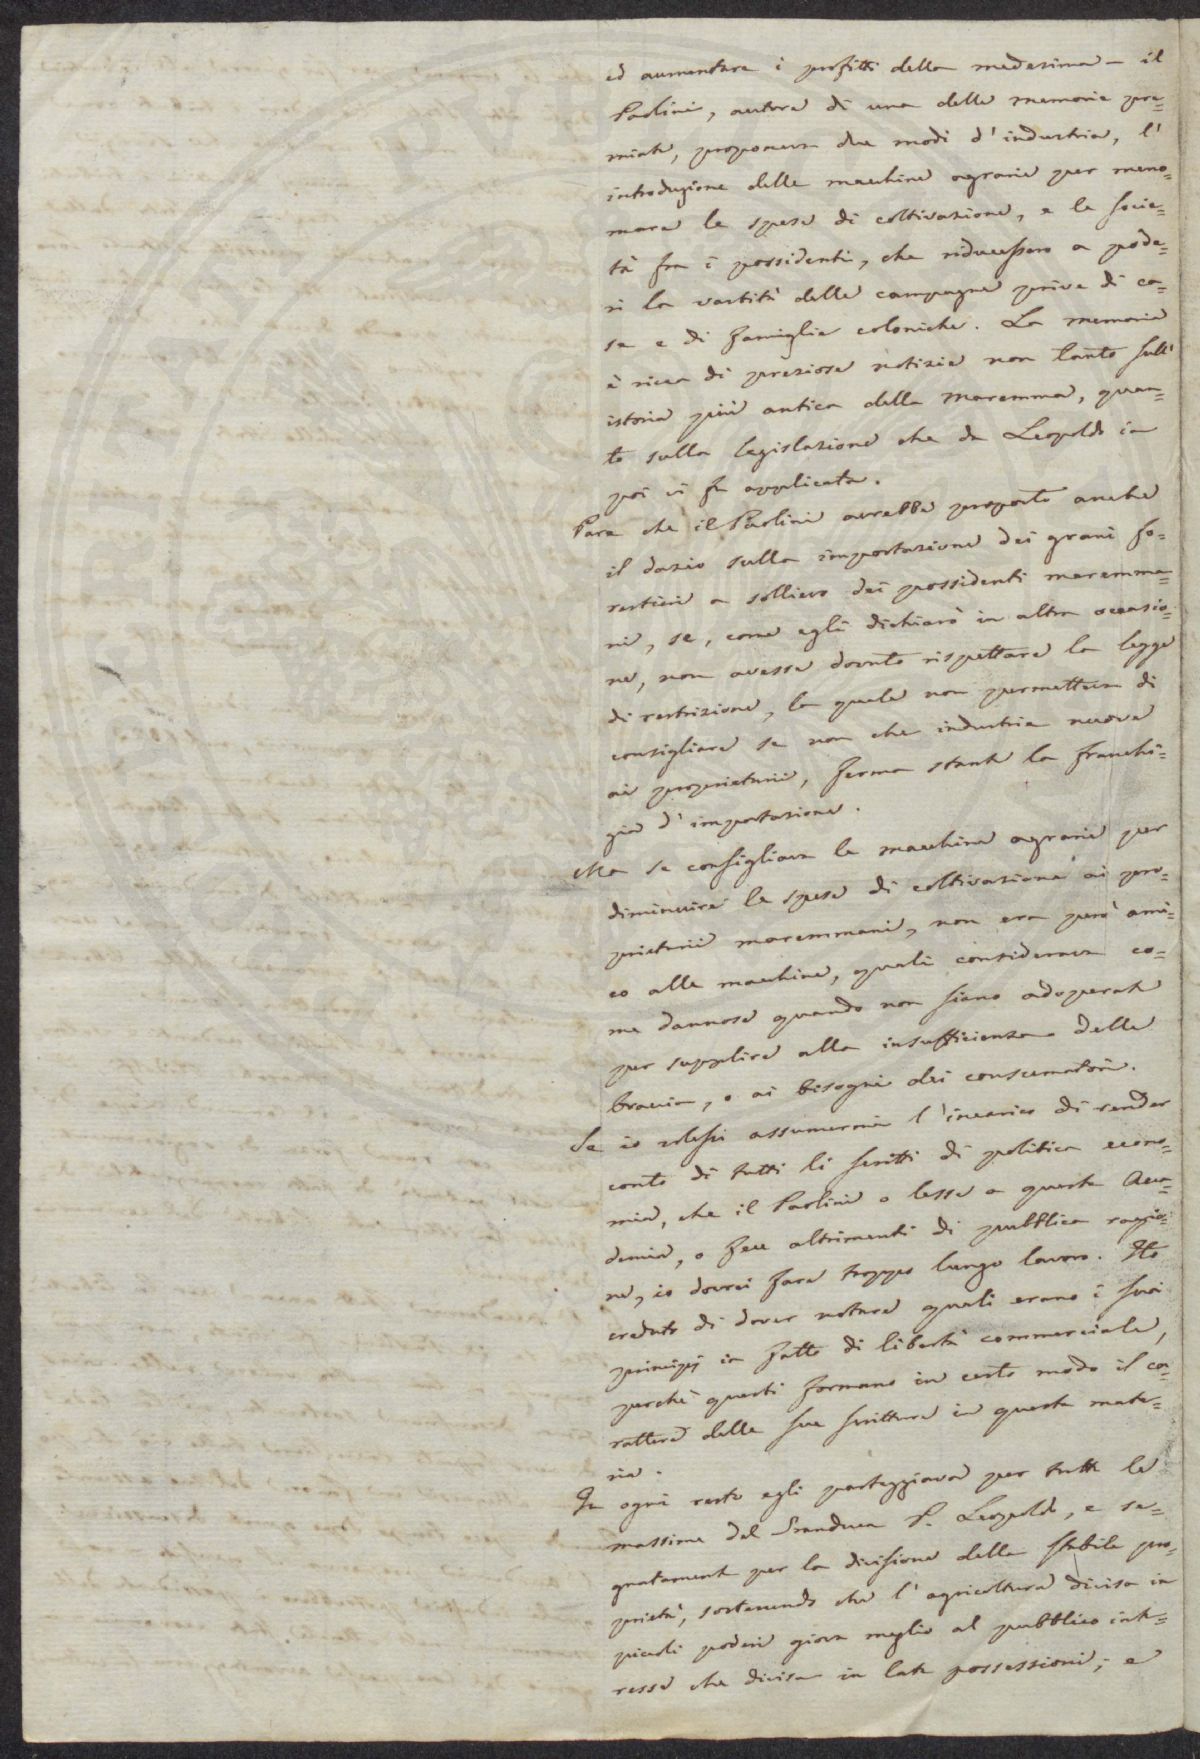 ed aumentare i profitti della medesima – il
Paolini, autore di una delle memorie pre=
miate, proponeva due modi d'industria, l'
introduzione delle macchine agrarie per meno=
mare le spese di coltivazione, e le socie=
tà fra i possidenti, che riducessero a pode=
ri la vastità delle campagne prive di ca=
se e di famiglie coloniche. La memoria
è ricca di preziose notizie non tanto sull'
istoria più antica della Maremma, quan=
to sulla legislazione che da Leopoldo in
poi vi fu applicata.
Pare che il Paolini avrebbe proposto anche
il dazio sulla importazione dei grani fo=
restieri a sollievo dei possidenti maremma=
ni, se, come egli dichiarò in altra occasio=
ne, non avesse dovuto rispettare la legge
di restrizione, la quale non permetteva di
consigliare se non che industrie nuove
ai proprietarii, ferma stante la franchi=
gia d'importazione.
Ma se consigliava le macchine agrarie per
diminuire le spese di coltivazione ai pro=
prietarii maremmani, non era però ami=
co alle macchine, quali considerava co=
me dannose quando non siano adoperate
per supplire alla insufficienza delle
braccia, o ai bisogni dei consumatori.
Se io volessi assumermi l'incarico di render
conto di tutti li scritti di politica econo=
mia, che il Paolini o lesse a questa Acca=
demia, o fece altrimenti di pubblica ragio=
ne, io dovrei fare troppo lungo lavoro. Ho
creduto di dover notare quali erano i suoi
principj in fatto di libertà commerciale,
perchè questi formano in certo modo il ca=
rattere delle sue scritture in questa mate=
ria.
In ogni resto egli parteggiava per tutte le
massime del Granduca P. Leopoldo, e se=
gnatamente per la divisione della stabile pro=
prietà, sostenendo che l'agricoltura divisa in
piccoli poderi giova meglio al pubblico inte=
resse che divisa in late possessioni; e